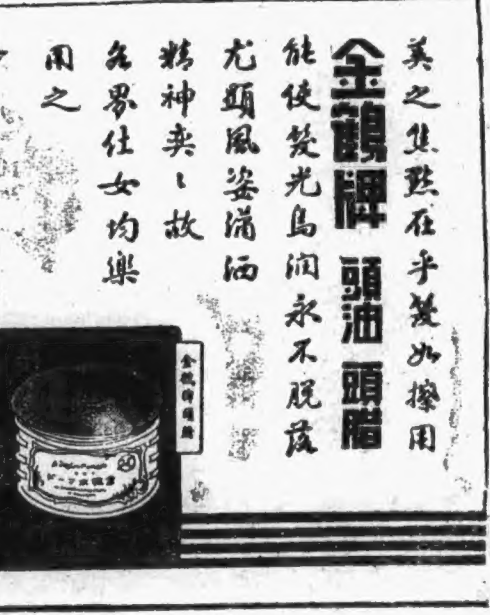 美之焦點在乎髮如擦用
金鶴牌 頭油 頭腊
能使髮光烏潤永不脱落
尤顕風姿瀟洒
精神奕〻故
各界仕女均樂
用之